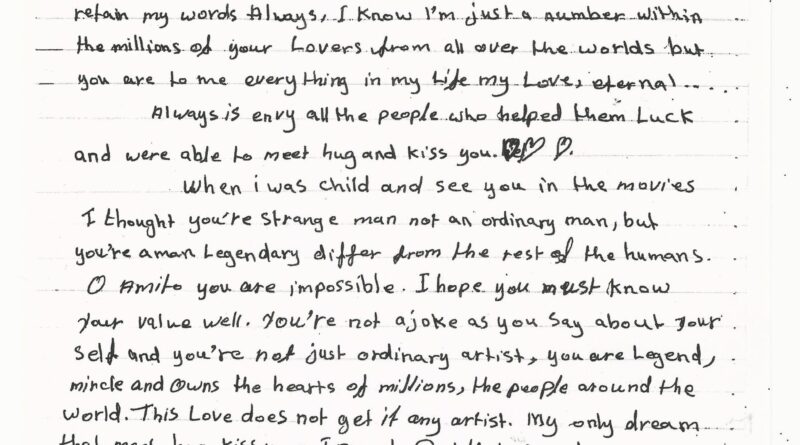 retain my words Always, I know I'm just a number within
the millions of your Lovers from all over the worlds but
you are to me everything in my life my Love, eternal.....
Always is envy all the people who helped them Luck
and were able to meet hug and kiss you.
When i was child and see you in the movies
I thought you're strange man not an ordinary man, but
you're a man Legendary differ from the rest of the humans.
O Amito you are impossible. I hope you must know
your value well. You're not a joke as you say about your
self and you're not just ordinary artist, you are Legend,
mircle and owns the hearts of millions, the people around the
world. This Love does not get it any artist. My only dream